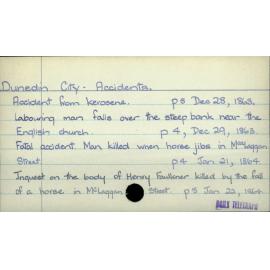 Dunedin City - Accidents.
Accident from kerosene. p5 Dec 28, 1863.
Labouring man falls over the steep bank near the
English church. p 4, Dec 29, 1863.
Fatal accident. Man killed when horse jibs in MacLaggan
Street. p4 Jan 21, 1864.
Inquest on the body of Henry Faulkner killed by the fall
of a horse in McLaggan Street. p5 Jan 22, 1864.
DAILY TELEGRAPH